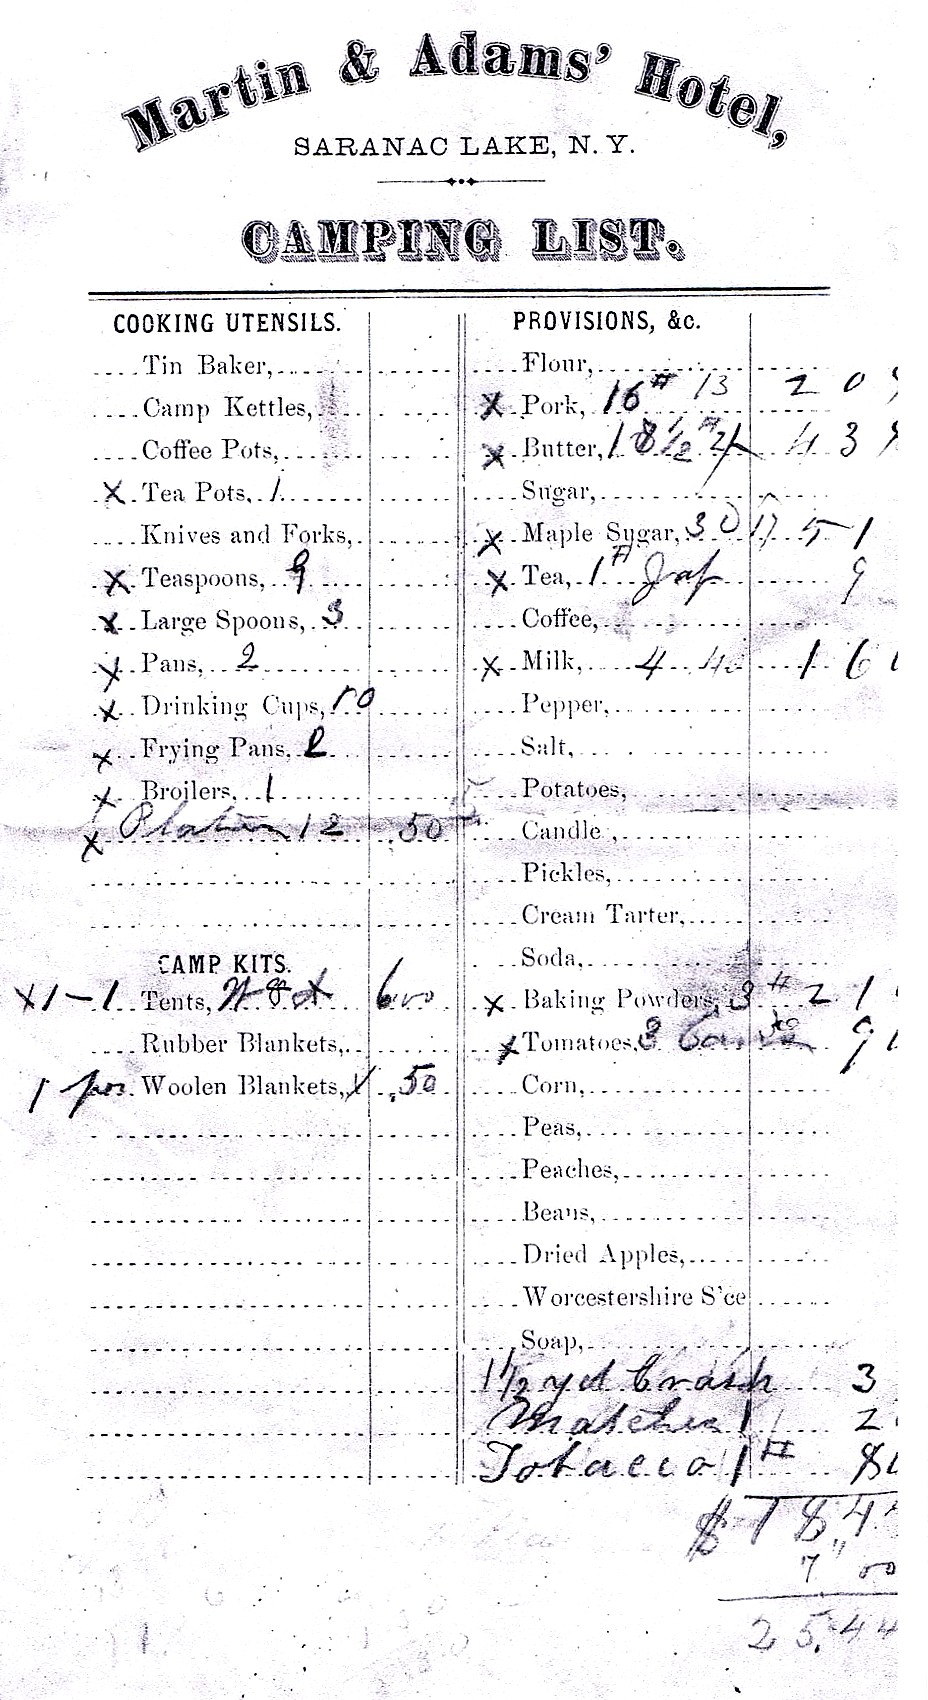 Martin & Adams' Hotel,
SARANAC LAKE, N. Y.
CAMPING LIST.
COOKING UTENSILS.
Tin Baker,
Camp Kettles,
Coffee Pots,
X Tea Pots, 1
Knives and Forks,
X Teaspoons, 9
X Large Spoons, 3
X Pans, 2
X Drinking Cups, 10
X Frying Pans, 2
X Broilers, 1
X 12 .50
CAMP KITS.
X 1-1 Tents, 6 00
Rubber Blankets,
1 Woolen Blankets, .50
PROVISIONS, &c.
Flour,
X Pork, 16# 13 2 0
X Butter, 18½# 4 3
Sugar,
X Maple Sugar, 30 17 5 1
X Tea, 1# Jap 9
Coffee,
X Milk, 4 40 1 6
Pepper,
Salt,
Potatoes,
Candle ,
Pickles,
Cream Tarter,
Soda,
X Baking Powders, 3# 2 1
X Tomatoes, 3 Cans 30 9
Corn,
Peas,
Peaches,
Beans,
Dried Apples,
Worcestershire S'ce
Soap,
1½ yd Crash 3
Matches 1 2
Tobacco 1# 8
$ 18 4
7 00
25.44